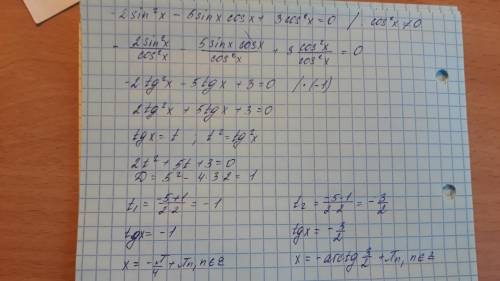 -2sin²x - 5sinx cosx + 3cos²x = 0 / cos²x ≠ 0
- 2sin²x/cos²x - 5sinx cosx/cos²x + 3 cos²x/cos²x = 0
-2tg²x - 5tgx + 3 = 0 /·(-1)
2tg²x + 5tgx + 3 = 0
tgx = t ; t² = tg²x
2t² + 5t + 3 = 0
D = 5² - 4·3·2 = 1
t₁ = -5+1/2·2 = -1 t₂ = -5-1/2·2 = -3/2
tgx = -1 tgx = -3/2
x = -π/4 + πn, n∈Z x = -arctg 3/2 + πn, n∈Z